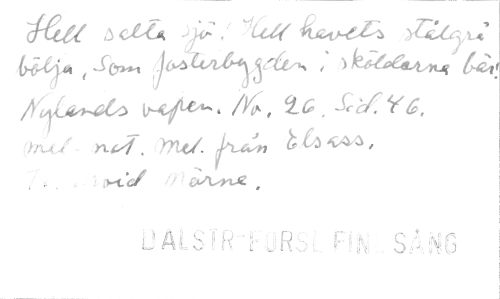 Hell salta sjö! Hell havets stålgrå
bölja, som fosterbygden i sköldarna bär!
Nylands vapen. No. 26. Sid. 46.
mel. not. Mel. från Elsass.
Mörne.
DALSTR-FORSL FIN SÅNG